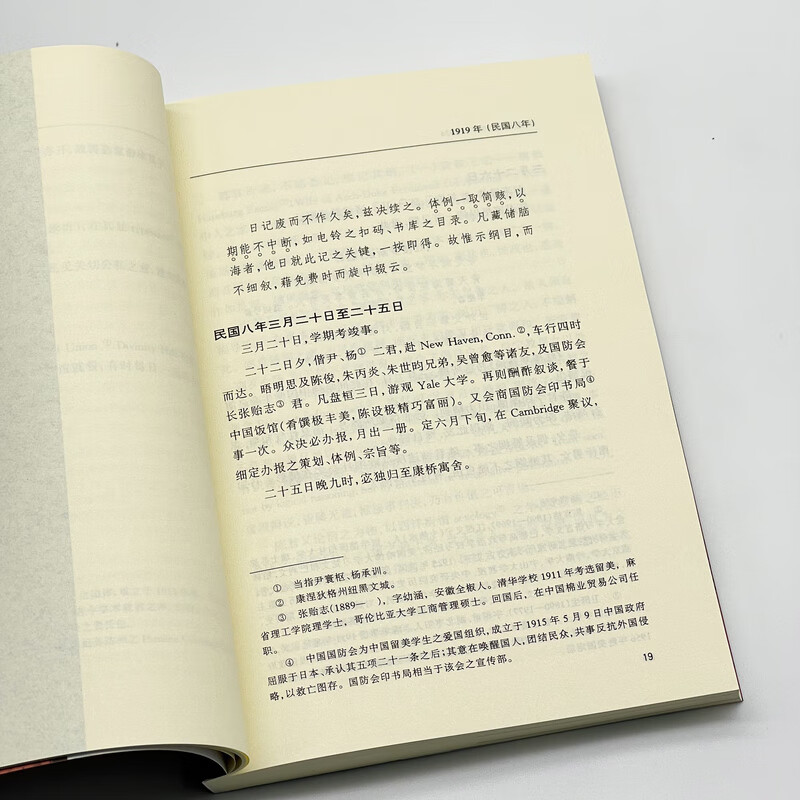 1919 年(民国八年)
日记废而不作久矣,兹决续之。体例一取简赅,以
期能不中断,如电铃之扣码、书库之目录。凡藏储脑
海者,他日就此记之关键,一按即得。故惟示纲目,而
不细叙,藉免费时而旋中辍云。
民国八年三月二十日至二十五日
三月二十日,学期考竣事。
二十二日夕,偕尹、杨① 二君,赴 New Haven, Conn. ②,车行四时
而达。晤明思及陈俊,朱丙炎、朱世昀兄弟,吴曾愈等诸友,及国防会
长张贻志③ 君。凡盘桓三日,游观 Yale 大学。再则酬酢叙谈,餐于
中国饭馆(肴馔极丰美,陈设极精巧富丽)。又会商国防会印书局④
事一次。众决必办报,月出一册。定六月下旬,在 Cambridge 聚议,
细定办报之策划、体例、宗旨等。
二十五日晚九时,宓独归至康桥寓舍。
① 当指尹寰枢、杨承训。
② 康涅狄格州纽黑文城。
③ 张贻志(1889— ),字幼涵,安徽全椒人。清华学校 1911 年考选留美,麻
省理工学院理学士,哥伦比亚大学工商管理硕士。回国后,在中国棉业贸易公司任
职。
④ 中国国防会为中国留美学生之爱国组织,成立于 1915 年 5 月 9 日中国政府
屈服于日本、承认其五项二十一条之后;其意在唤醒国人,团结民众,共事反抗外国侵
略,以救亡图存。国防会印书局相当于该会之宣传部。
19